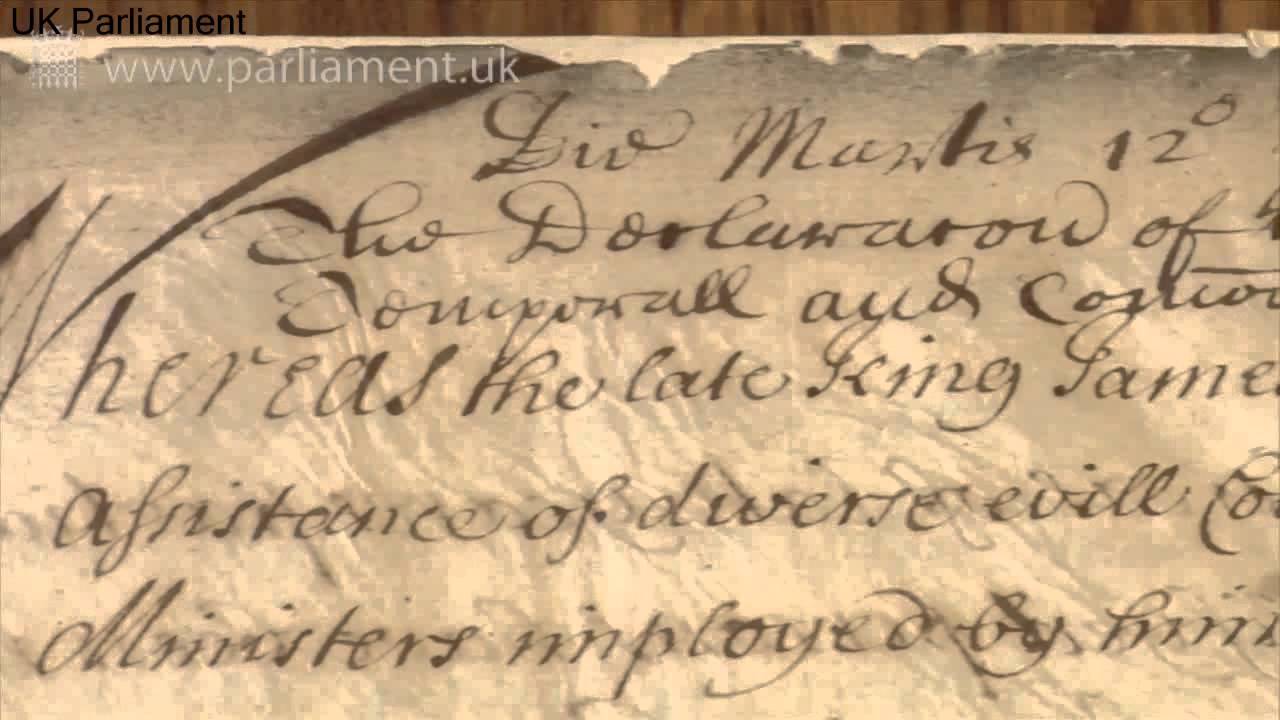 UK Parliament
www.parliament.uk
Die Martis 12o
The Declaracon of
Temporall and Com
Whereas the late King James
Assistance of diverse evill Co
Ministers imployed by him